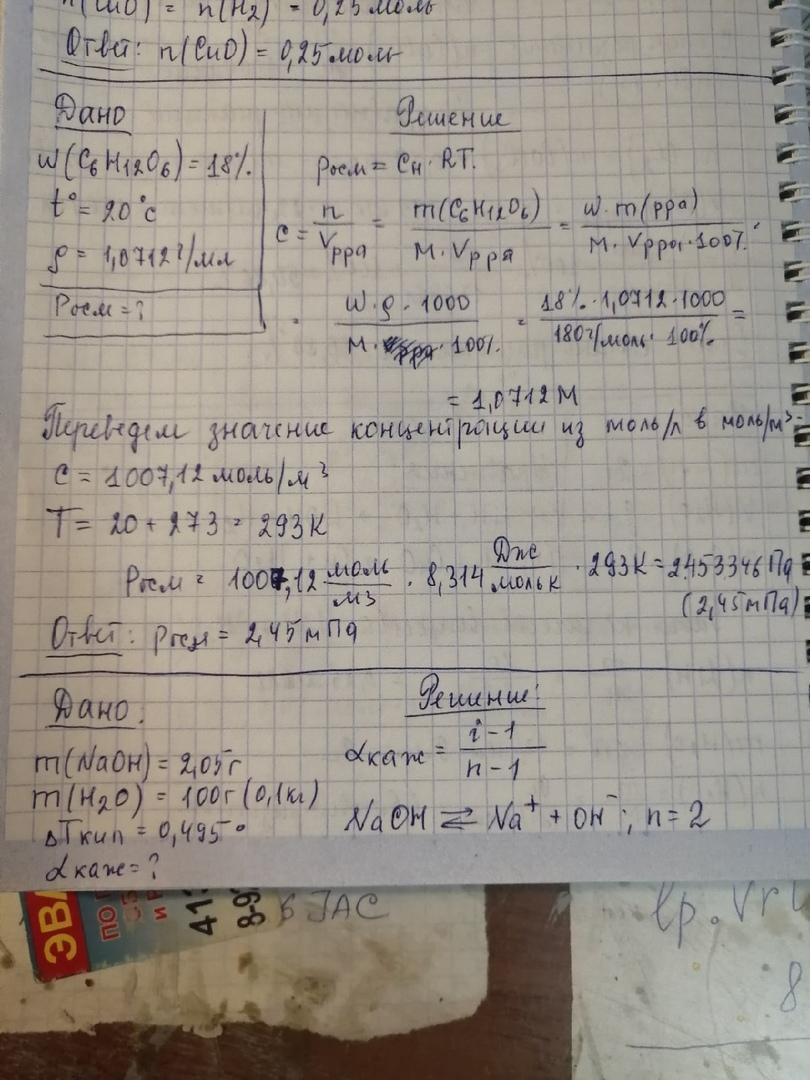 n(CuO) = n(H2) = 0,25 моль
Ответ: n(CuO) = 0,25 моль
Дано
Решение
ω(C6H12O6) = 18%.
t° = 20°c
ρ = 1,0712 г/мл
Pосм = ?
Pосм = Cн · RT.
C = n / Vр-ра = m(C6H12O6) / M · Vр-ра = ω · m(р-ра) / M · Vр-ра · 100%
= ω · ρ · 1000 / M · 100% = 18% · 1,0712 · 1000 / 180 г/моль · 100% =
= 1,0712 M
Переведем значение концентрации из моль/л в моль/м³:
C = 1007,12 моль/м³
T = 20 + 273 = 293K
Pосм = 1007,12 моль/м3 · 8,314 Дж/моль к · 293K = 2453346 Па
(2,45 мПа)
Ответ: Pосм = 2,45 мПа
Дано:
Решение:
m(NaOH) = 2,05г
m(H2O) = 100г (0,1кг)
ΔTкип = 0,495°
αкаж = ?
αкаж = i - 1 / n - 1
NaOH ⇄ Na⁺ + OH⁻; n = 2
ЭВА
ПО
413
8-9
6 ГАС
8